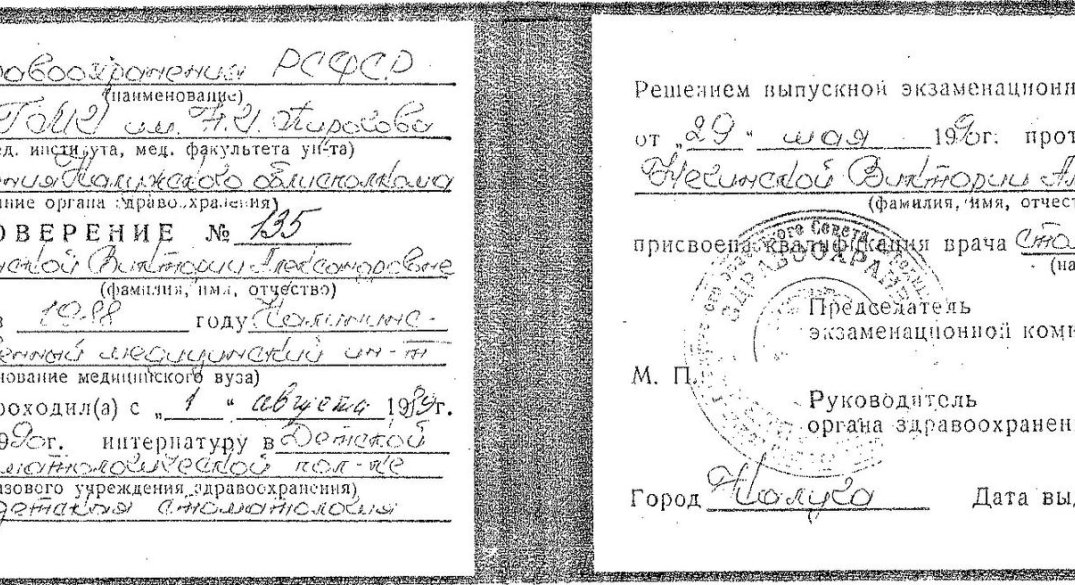 равоохранения РСФСР
(наименование)
ГОМИ им. Н.И. Пирогова
ед. института, мед. факультета ун-та)
ения Калужского облисполкома
ание органа здравоохранения)
ОВЕРЕНИЕ № 135
нской Виктории Александровне
(фамилия, имя, отчество)
в 1988 году Калининс-
венный медицинский ин-т
нование медицинского вуза)
роходил(а) с „1" августа 1989г.
990г. интернатуру в Детской
матологической пол-ке
азового учреждения здравоохранения)
детская стоматология
Решением выпускной экзаменационн
от „29" мая 1990г. прот
Виктории Ал
(фамилия, имя, отчест
присвоена квалификация врача Стол
(на
ЗДРАВООХРАН
Председатель
экзаменационной коми
М. П.
Руководитель
органа здравоохранен
Город Калуга Дата вы